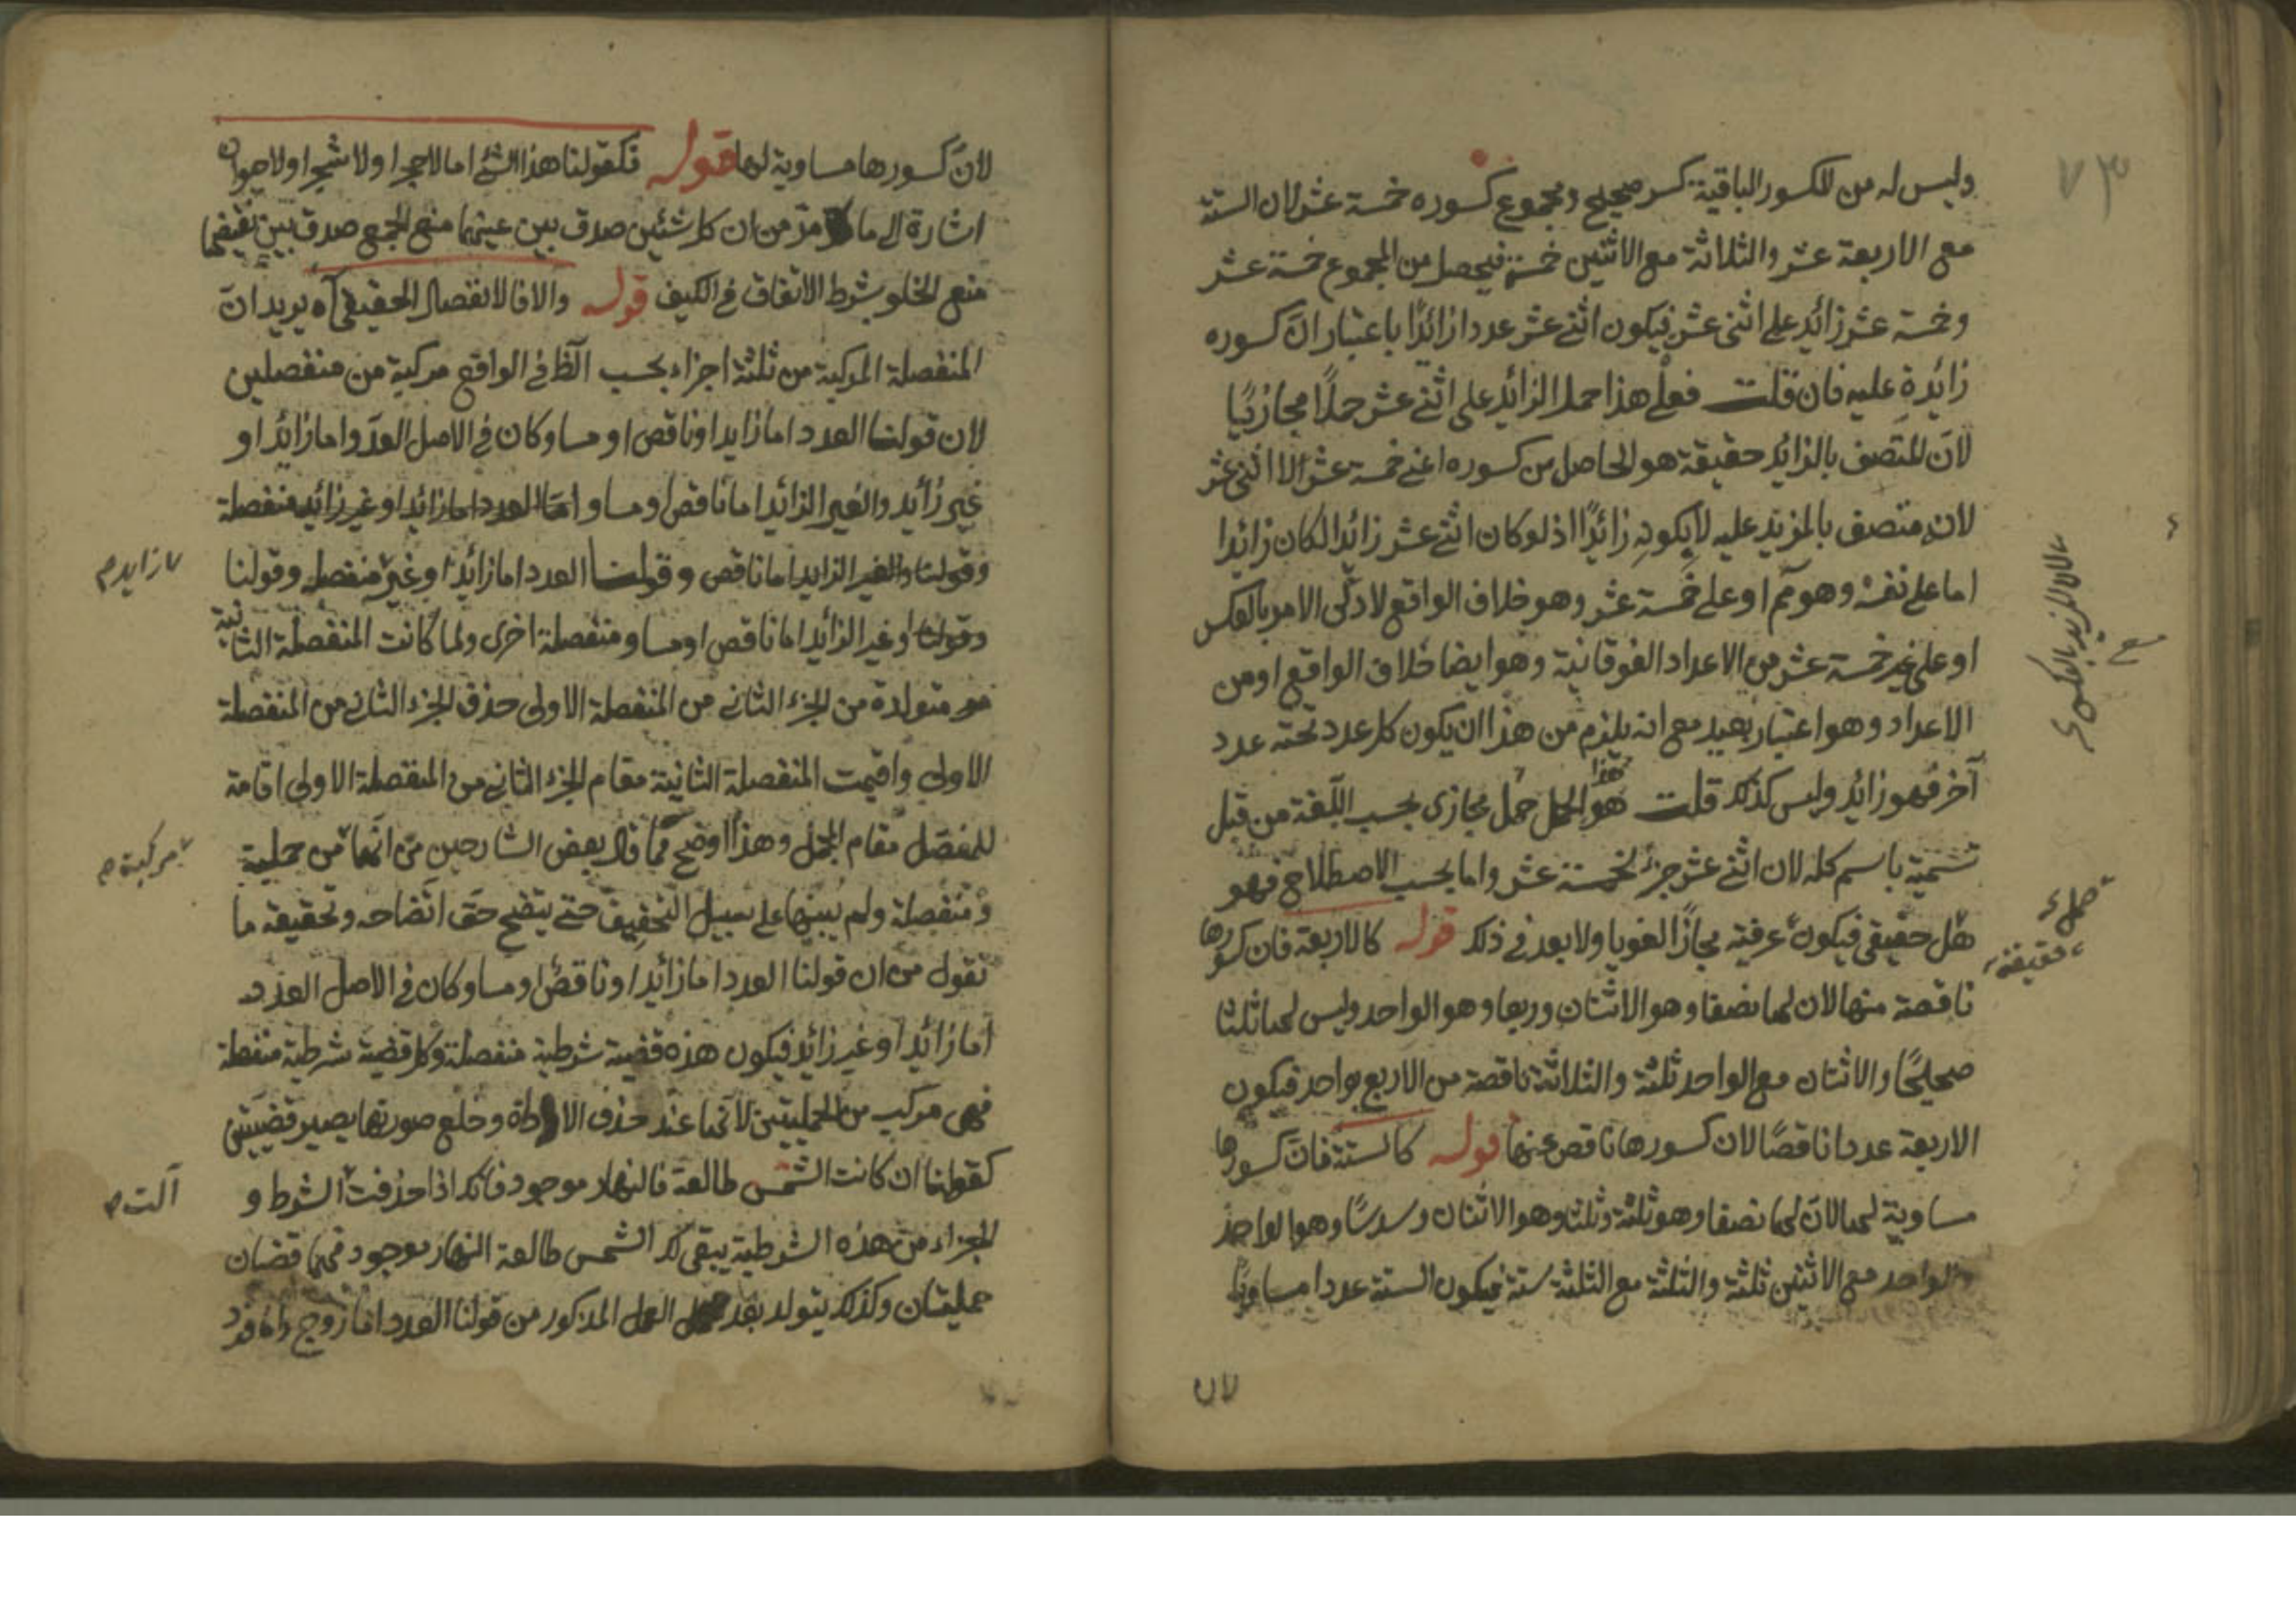 ٧٣
وليس له من الكسور الباقية كسر صحيح ومجموع كسوره خمسة عشر لان الستة
مع الاربعة عشر والثلاثة مع الاثنين خمسة فيحصل من المجموع خمسة عشر
وخمسة عشر زائد على اثنى عشر فيكون اثنى عشر عددا زائدًا باعتبار انّ كسوره
زائدة عليه فان قلت فعلى هذا حمل الزائد على اثنى عشر حملًا مجازيًا
لانّ المتصف بالزائد حقيقة هو الحاصل من كسوره اعنى خمسة عشر لا اثنى عشر
لانه متصف بالمزيد عليه لا بكونه زائدًا اذ لو كان اثنى عشر زائدا لكان زائدا
اما على نفسه وهو مم او على خمسة عشر وهو خلاف الواقع لا بل الامر بالعكس
او على غير خمسة عشر من الاعداد الفوقانية وهو ايضا خلاف الواقع او من
الاعداد وهو اعتبار بعيد مع انه يلزم من هذا ان يكون كل عدد تحته عدد
آخر فهو زائد وليس كذلك قلت هذا الحمل حمل مجازى بحسب اللغة من قبل
تسمية باسم كله لان اثنى عشر جزء لخمسة عشر واما بحسب الاصطلاح فهو
حقيقى فيكون عرفية مجازًا لغويا ولا بعد فى ذلك قوله كالاربعة فان كسورها
ناقصة منها لان لها نصفا وهو الاثنان وربعا وهو الواحد وليس لها ثلثا
صحيحًا والاثنان مع الواحد ثلثة والثلاثة ناقصة من الاربع بواحد فيكون
الاربعة عددا ناقصًا لان كسورها ناقص عنها قوله كالستة فان كسورها
مساوية لها لانّ لها نصفا وهو ثلثة وثلثا وهو الاثنان وسدسًا وهو الواحد
والواحد مع الاثنين ثلثة والثلثة مع الثلثة ستة فيكون الستة عددا مساويًا
حمل
حقيقة
لانّ كسورها مساوية لها قوله فكقولنا هذا الشئ اما لا حجرا ولا شجرا ولا حيوان
اشارة الى ما مرّ من ان كل شئين صدق بين عينهما منع الجمع صدق بين نقيضهما
منع الخلو بشرط الاتفاق فى الكيف قوله والا فالانفصال الحقيقى آه يريد انّ
المنفصلة المركبة من ثلثة اجزاء بحسب الظ فى الواقع مركبة من منفصلين
لان قولنا العدد اما زايد او ناقص او مساو كان فى الاصل العدد اما زائد او
غير زائد والغير الزائد اما ناقص او مساو اما العدد اما زائد او غير زائد منفصلة
وقولنا والغير الزايد اما ناقص وقولنا العدد اما زائدا او غير منفصل وقولنا
وقولنا او غير الزائد اما ناقص او مساو منفصلة اخرى ولما كانت المنفصلة الثانية
متولدة من الجزء الثانى من المنفصلة الاولى حذف الجزء الثانى من المنفصلة
الاولى واقيمت المنفصلة الثانية مقام الجزء الثانى من المنفصلة الاولى اقامة
للمفصّل مقام المجمل وهذا اوضح مما قال بعض الشارحين من انّها من حملية
ومنفصلة ولم يبينها على سبيل التحقيق حتى يتضح حق اتضاحه وتحقيقه ما
نقول من ان قولنا العدد اما زائدا او ناقص او مساو كان فى الاصل العدد
اما زائدا او غير زائد فيكون هذه قضية شرطية منفصلة وكل قضية شرطية منفصلة
فهى مركب من الحمليتين لانها عند حذف الاداة وخلع صورتها يصير قضيتين
كقولنا ان كانت الشمس طالعة فالنهار موجود فانك اذا حذفت الشرط و
الجزاء من هذه الشرطية يبقى لك الشمس طالعة النهار موجود فهما قضيتان
حمليتان وكذلك يتولد بعد العمل المذكور من قولنا العدد اما زوج واما فرد
زايد م
مركبة م